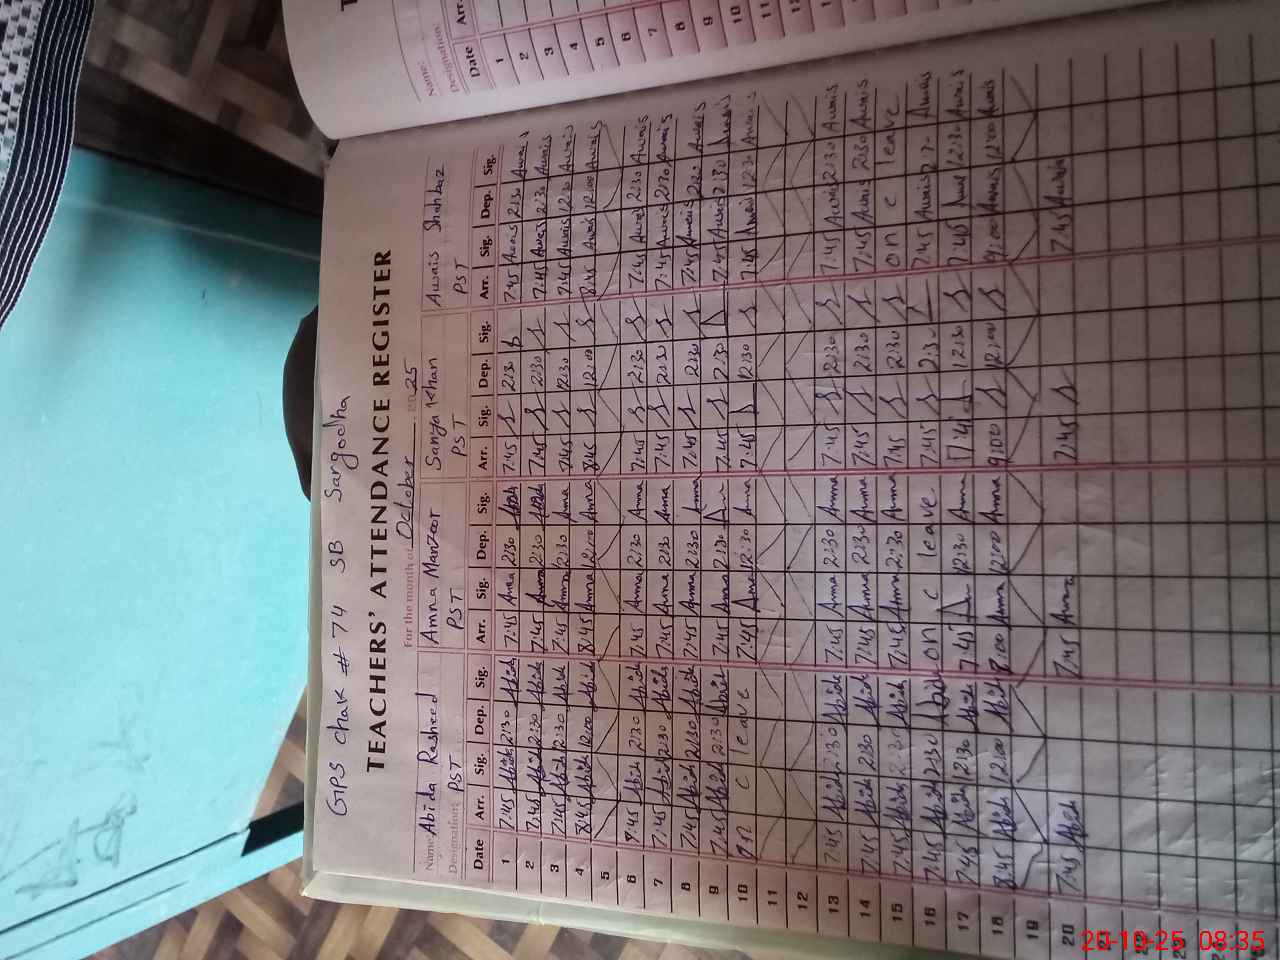 GPS Chak # 74 SB Sargodha
TEACHERS' ATTENDANCE REGISTER
For the month of October, 2025
Name: Abida Rasheed Amna Manzoor Sanya Khan Awais Shahbaz
Designation: PST PST PST PST
Date Arr. Sig. Dep. Sig. Arr. Sig. Dep. Sig. Arr. Sig. Dep. Sig. Arr. Sig. Dep. Sig.
1 7:45 Abida 2:30 Abida 7:45 Amna 2:30 7:45 2:30 7:45 Awais 2:30 Awais
2 7:45 Abida 2:30 Abida 7:45 Amna 2:30 7:45 2:30 7:45 Awais 2:30 Awais
3 7:45 Abida 2:30 Abida 7:45 Amna 2:30 Amna 7:45 12:30 7:45 Awais 12:30 Awais
4 8:45 Abida 12:00 Abida 8:45 Amna 12:00 Amna 8:45 12:00 8:45 Awais 12:00 Awais
5
6 7:45 Abida 2:30 Abida 7:45 Amna 2:30 Amna 7:45 2:30 7:45 Awais 2:30 Awais
7 7:45 Abida 2:30 Abida 7:45 Amna 2:30 Amna 7:45 2:30 7:45 Awais 2:30 Awais
8 7:45 Abida 2:30 Abida 7:45 Amna 2:30 Amna 7:45 2:30 7:45 Awais 2:30 Awais
9 7:45 Abida 2:30 Abida 7:45 Amna 2:30 7:45 2:30 7:45 Awais 2:30 Awais
10 on c leave 7:45 Amna 12:30 Amna 7:45 12:30 7:45 Awais 12:30 Awais
11
12
13 7:45 Abida 2:30 Abida 7:45 Amna 2:30 Amna 7:45 2:30 7:45 Awais 2:30 Awais
14 7:45 Abida 2:30 Abida 7:45 Amna 2:30 Amna 7:45 2:30 7:45 Awais 2:30 Awais
15 7:45 Abida 2:30 Abida 7:45 Amna 2:30 Amna 7:45 2:30 on c leave
16 7:45 Abida 2:30 Abida on c leave 7:45 2:30 7:45 Awais 2:30 Awais
17 7:45 Abida 12:30 Abida 7:45 12:30 Amna 7:45 12:30 7:45 Awais 12:30 Awais
18 8:45 Abida 12:00 Abida 8:00 Amna 12:00 Amna 9:00 12:00 9:00 Awais 12:00 Awais
19
20 7:45 Abida 7:45 Amna 7:45 7:45 Awais
21
22
Name:
Designation:
Date Arr.
1
2
3
4
5
6
7
8
9
10
11
20-10-25 08:35